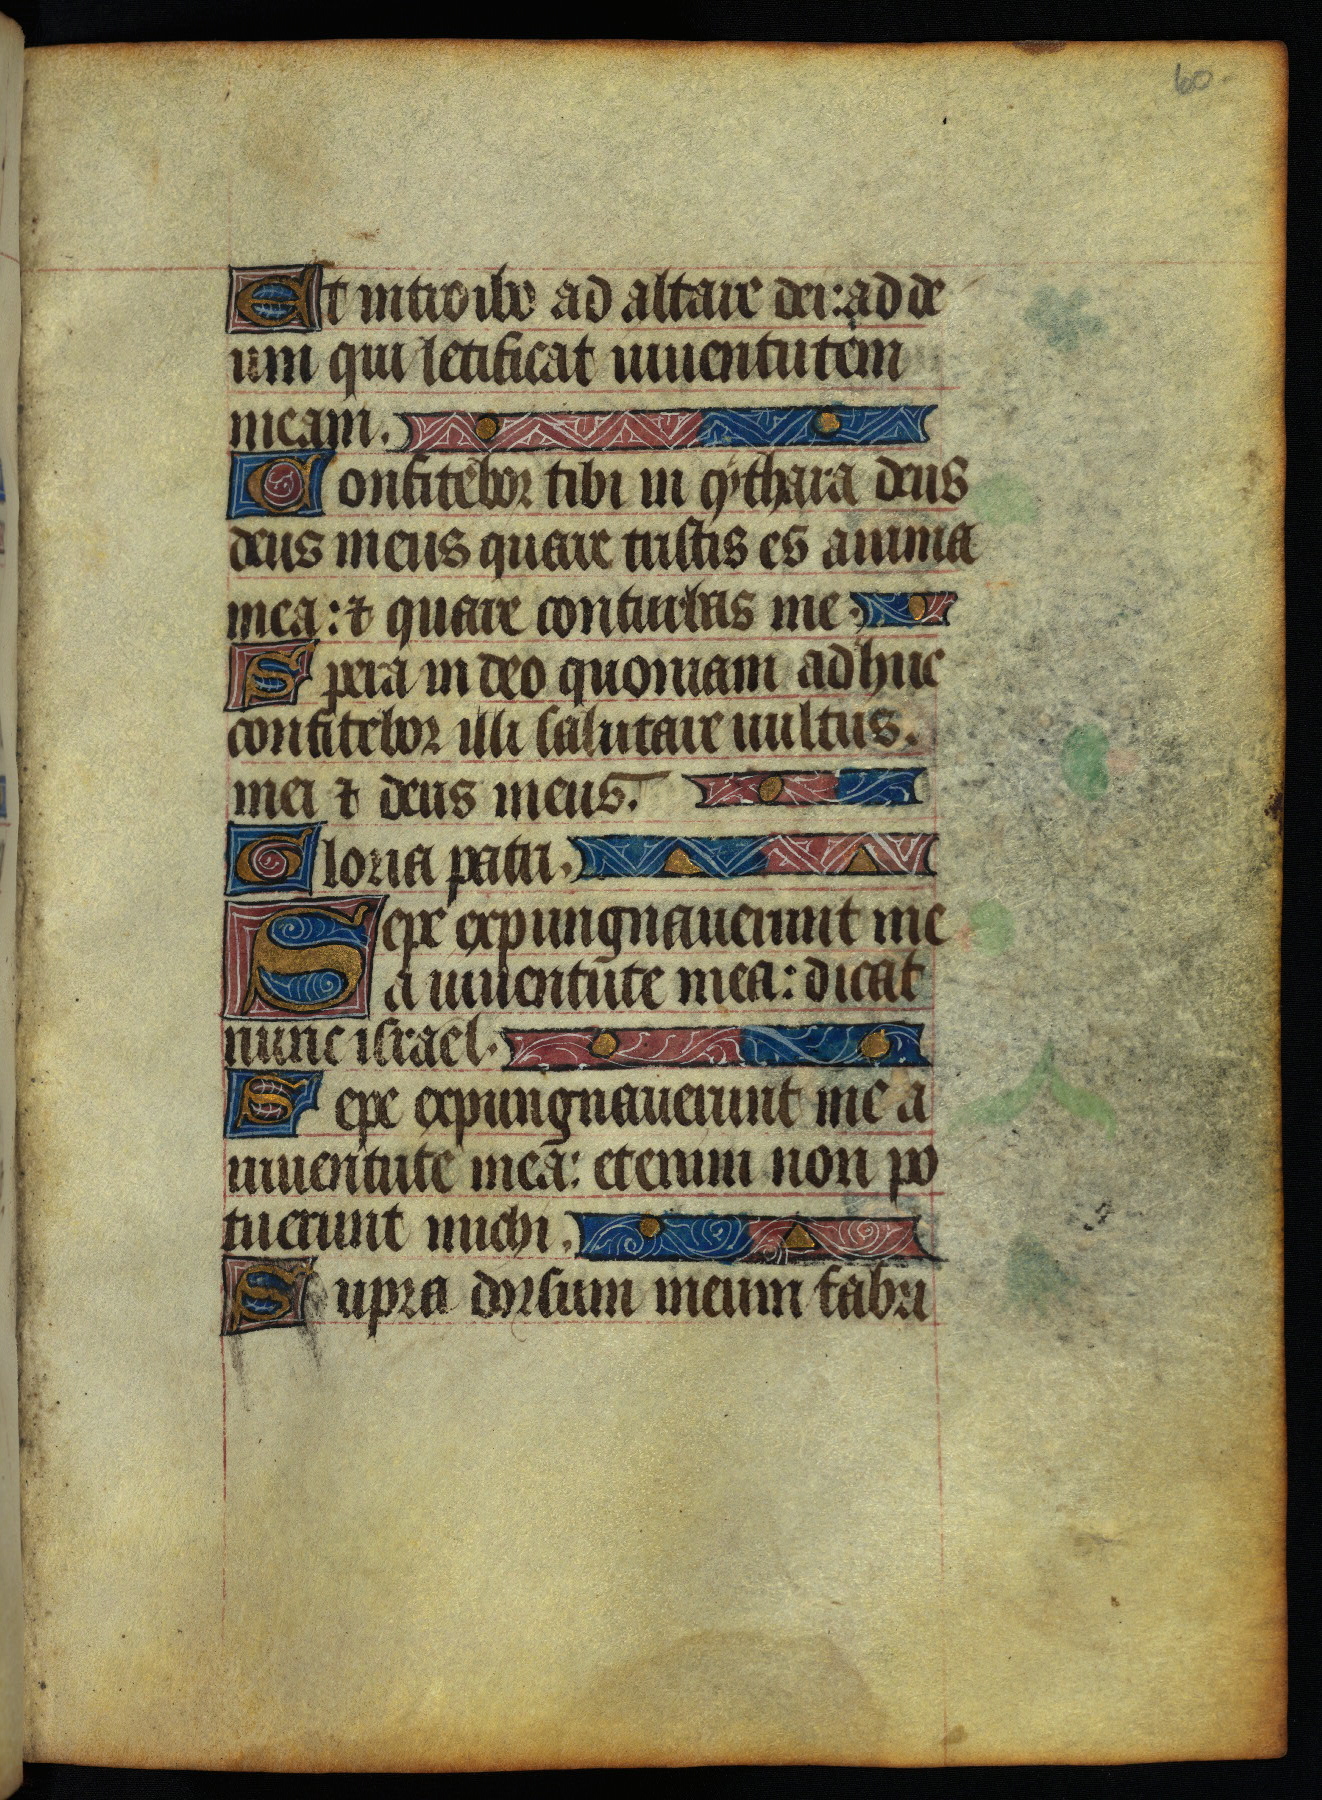 60.
Et introibo ad altare dei: ad de
um qui letificat iuuentutem
meam.
Confitebor tibi in cythara deus
deus meus quare tristis es anima
mea: ⁊ quare conturbas me.
Spera in deo quoniam adhuc
confitebor illi salutare uultus.
mei ⁊ deus meus.
Gloria patri.
Sepe expungnauerunt me
a iuuentute mea: dicat
nunc israel.
Sepe expungnauerunt me a
iuuentute mea: etenim non po
tuerunt michi.
Supra dorsum meum fabri